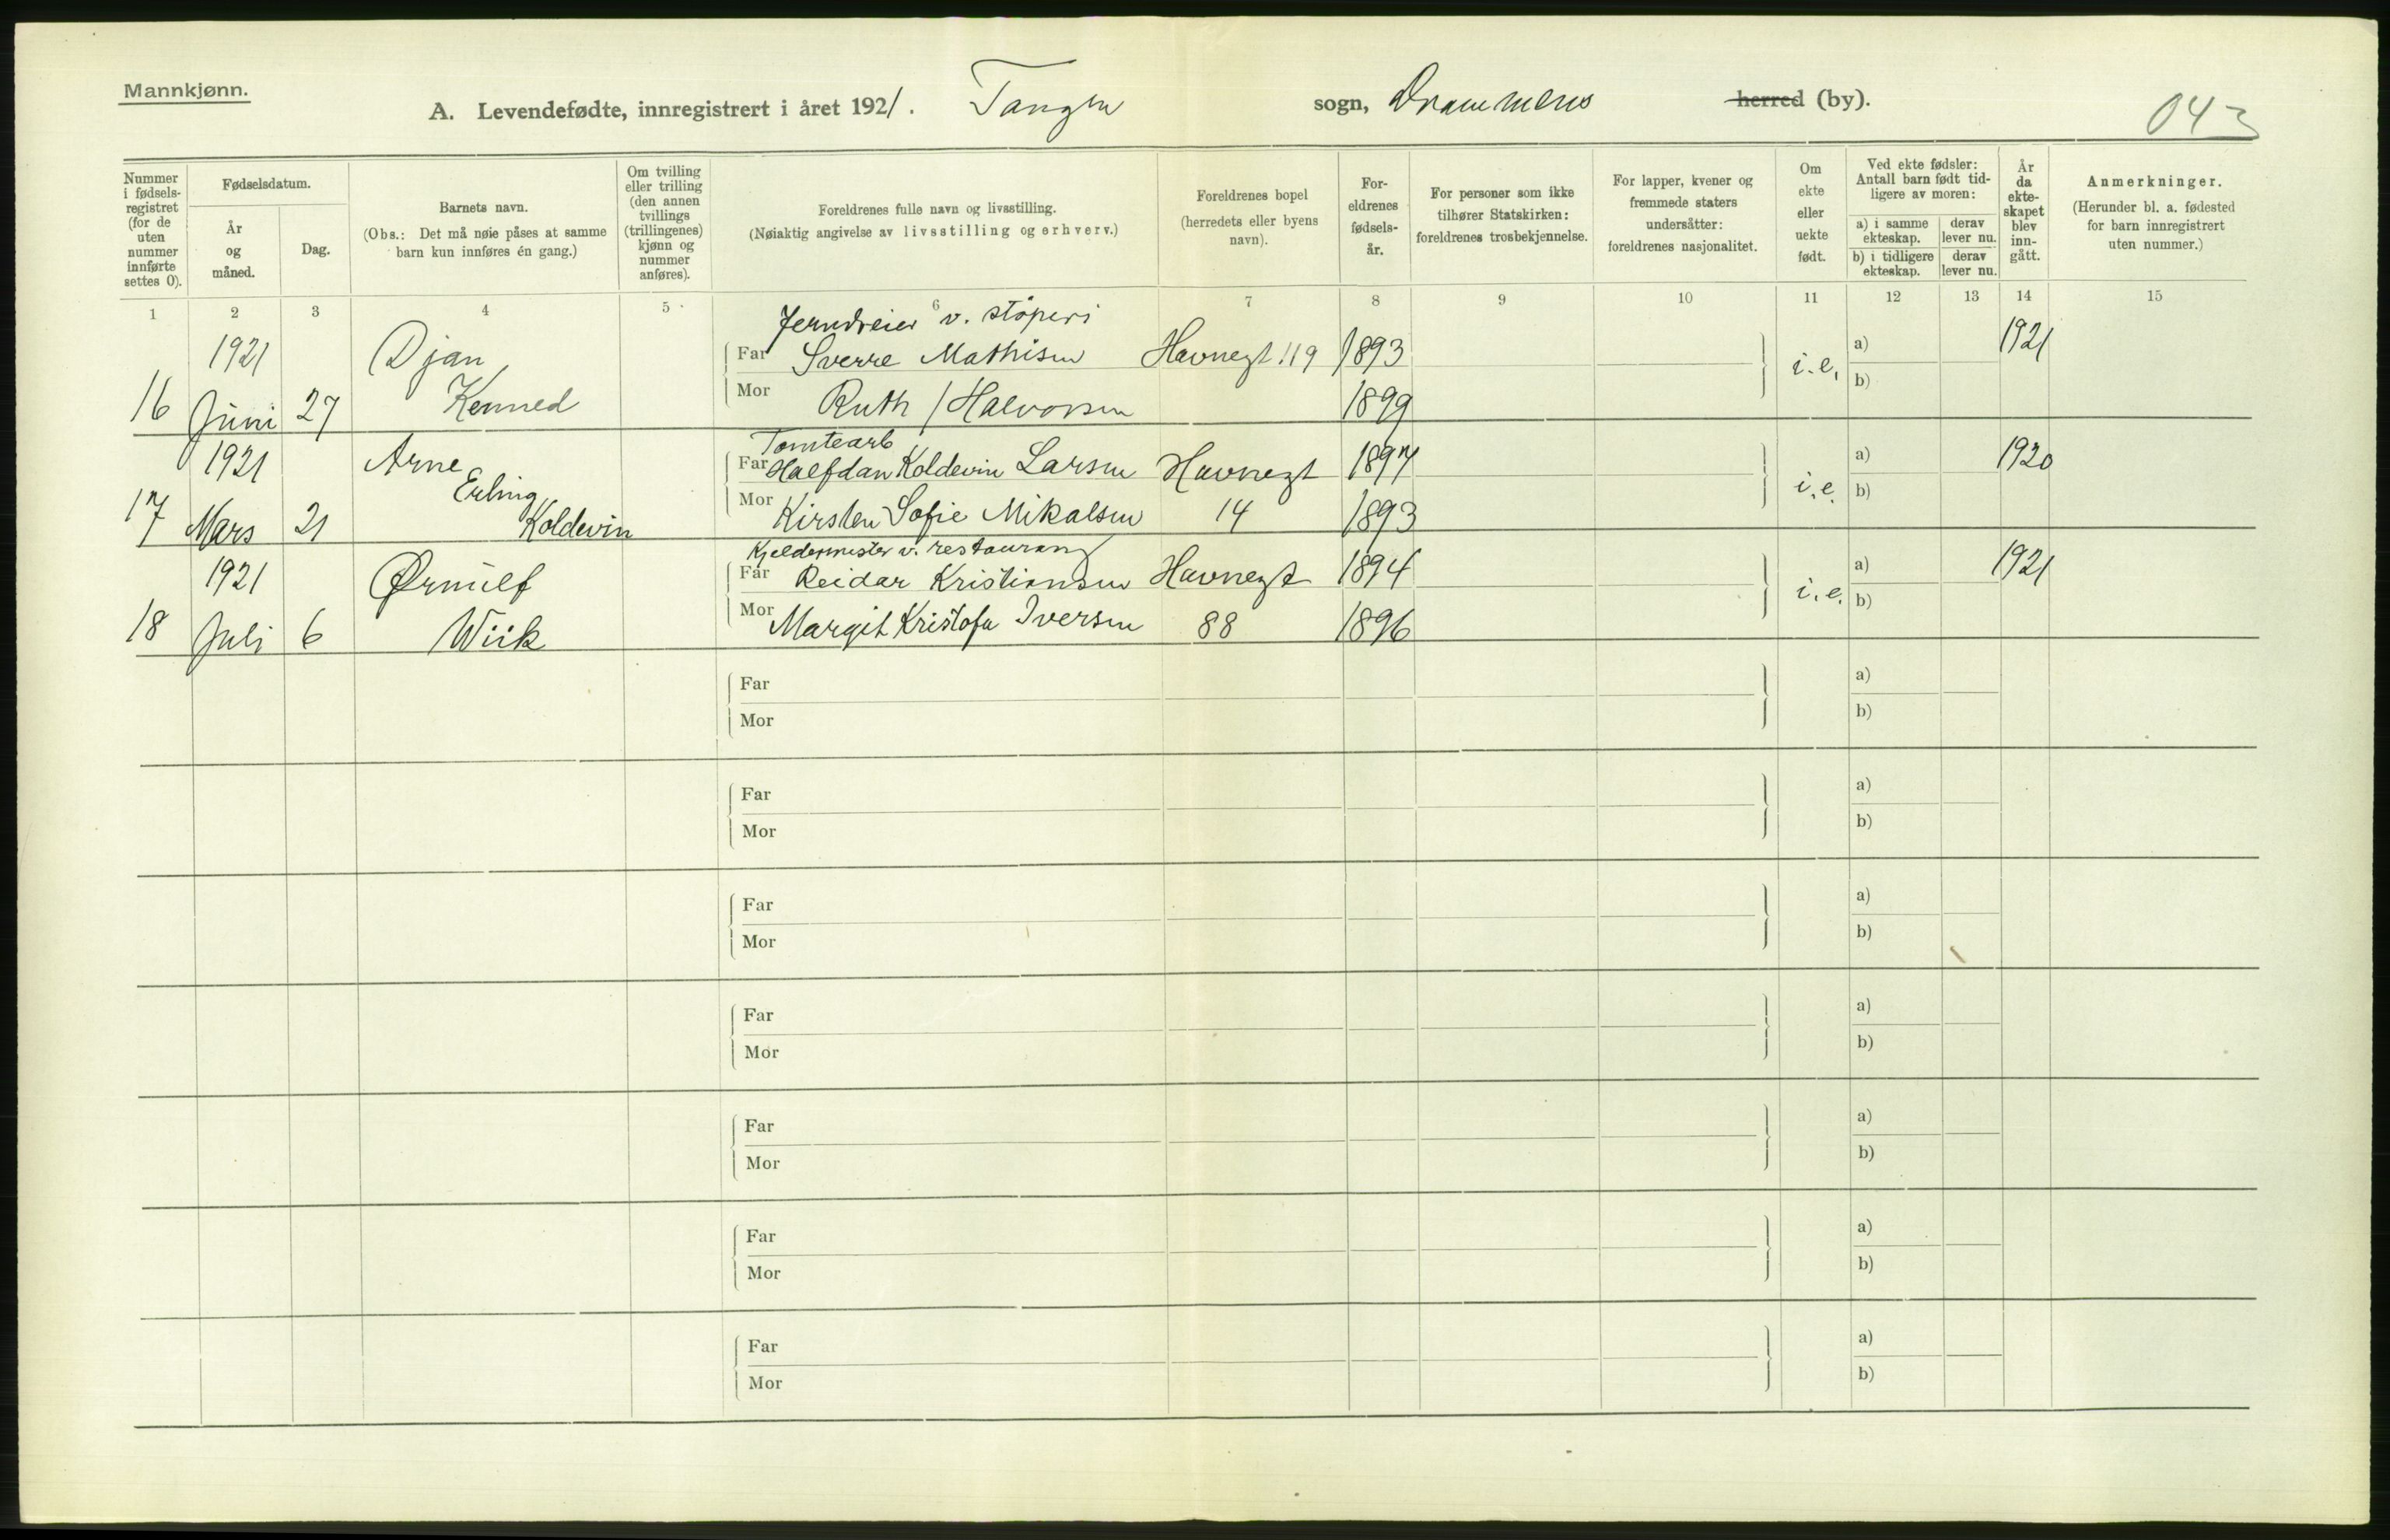 Mannkjønn.
A. Levendefødte, innregistrert i året 1921. Tangen sogn, Drammens herred (by).
043
Nummer i fødsels-registret (for de uten nummer innførte settes 0).
Fødselsdatum.
År og måned.
Dag.
Barnets navn.
(Obs.: Det må nøie påses at samme barn kun innføres én gang.)
Om tvilling eller trilling (den annen tvillings (trillingenes) kjønn og nummer anføres).
Foreldrenes fulle navn og livsstilling.
(Nøiaktig angivelse av livsstilling og erhverv.)
Foreldrenes bopel
(herredets eller byens navn).
For-eldrenes fødsels-år.
For personer som ikke tilhører Statskirken: foreldrenes trosbekjennelse.
For lapper, kvener og fremmede staters undersåtter: foreldrenes nasjonalitet.
Om ekte eller uekte født.
Ved ekte fødsler: Antall barn født tid-ligere av moren:
a) i samme ekteskap.
derav lever nu.
b) i tidligere ekteskap.
derav lever nu.
År da ekte-skapet blev inn-gått.
Anmerkninger.
(Herunder bl. a. fødested for barn innregistrert uten nummer.)
1 2 3 4 5 6 7 8 9 10 11 12 13 14 15
Jerndreier v. støperi
1921 Djan Far Sverre Mathisen Havnegt 119 1893 i.e. a) 1921
16 Juni 27 Kenned Mor Ruth / Halvorsen 1899 b)
Tomtearb
1921 Arne Far Halfdan Koldevin Larsen Havnegt 1897 i.e. a) 1920
Erling
17 Mars 21 Koldevin Mor Kirsten Sofie Mikalsen 14 1893 b)
Kjeldermester v. restaurang
1921 Ørnulf Far Reidar Kristiansen Havnegt 1894 i.e. a) 1921
18 Juli 6 Wiik Mor Margit Kristofa Iversen 88 1896 b)
Far a)
Mor b)
Far a)
Mor b)
Far a)
Mor b)
Far a)
Mor b)
Far a)
Mor b)
Far a)
Mor b)
Far a)
Mor b)